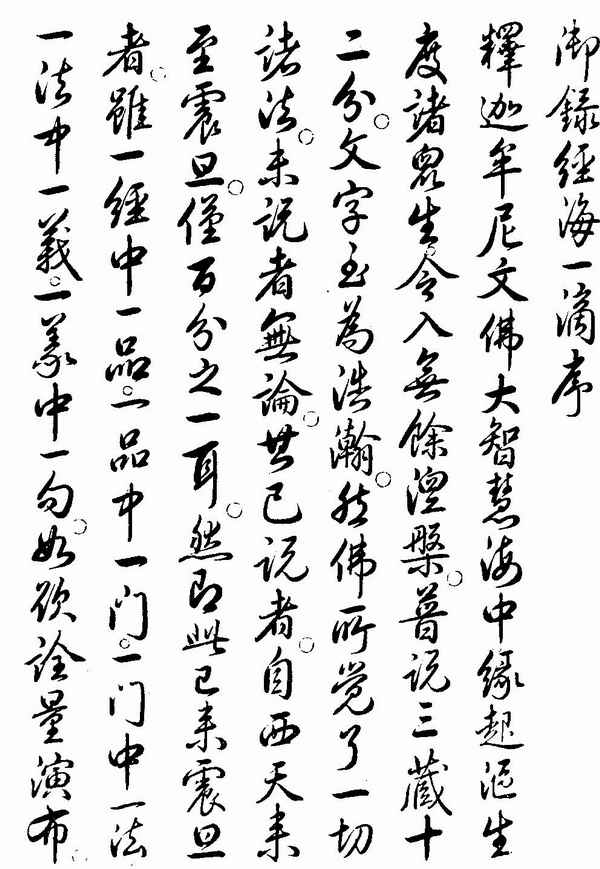 御録經海一滴序
釋迦牟尼文佛大智慧海中緣起漚生
度諸眾生令入無餘涅槃。普説三藏十
二分文字至為浩瀚。然佛所覺了一切
諸法。未説者無論。其已説者。自西天来
至震旦。僅百分之一耳。然即此已来震旦
者。雖一經中一品。一品中一门。一门中一法
一法中一義。一義中一句。如欲詮量演布。